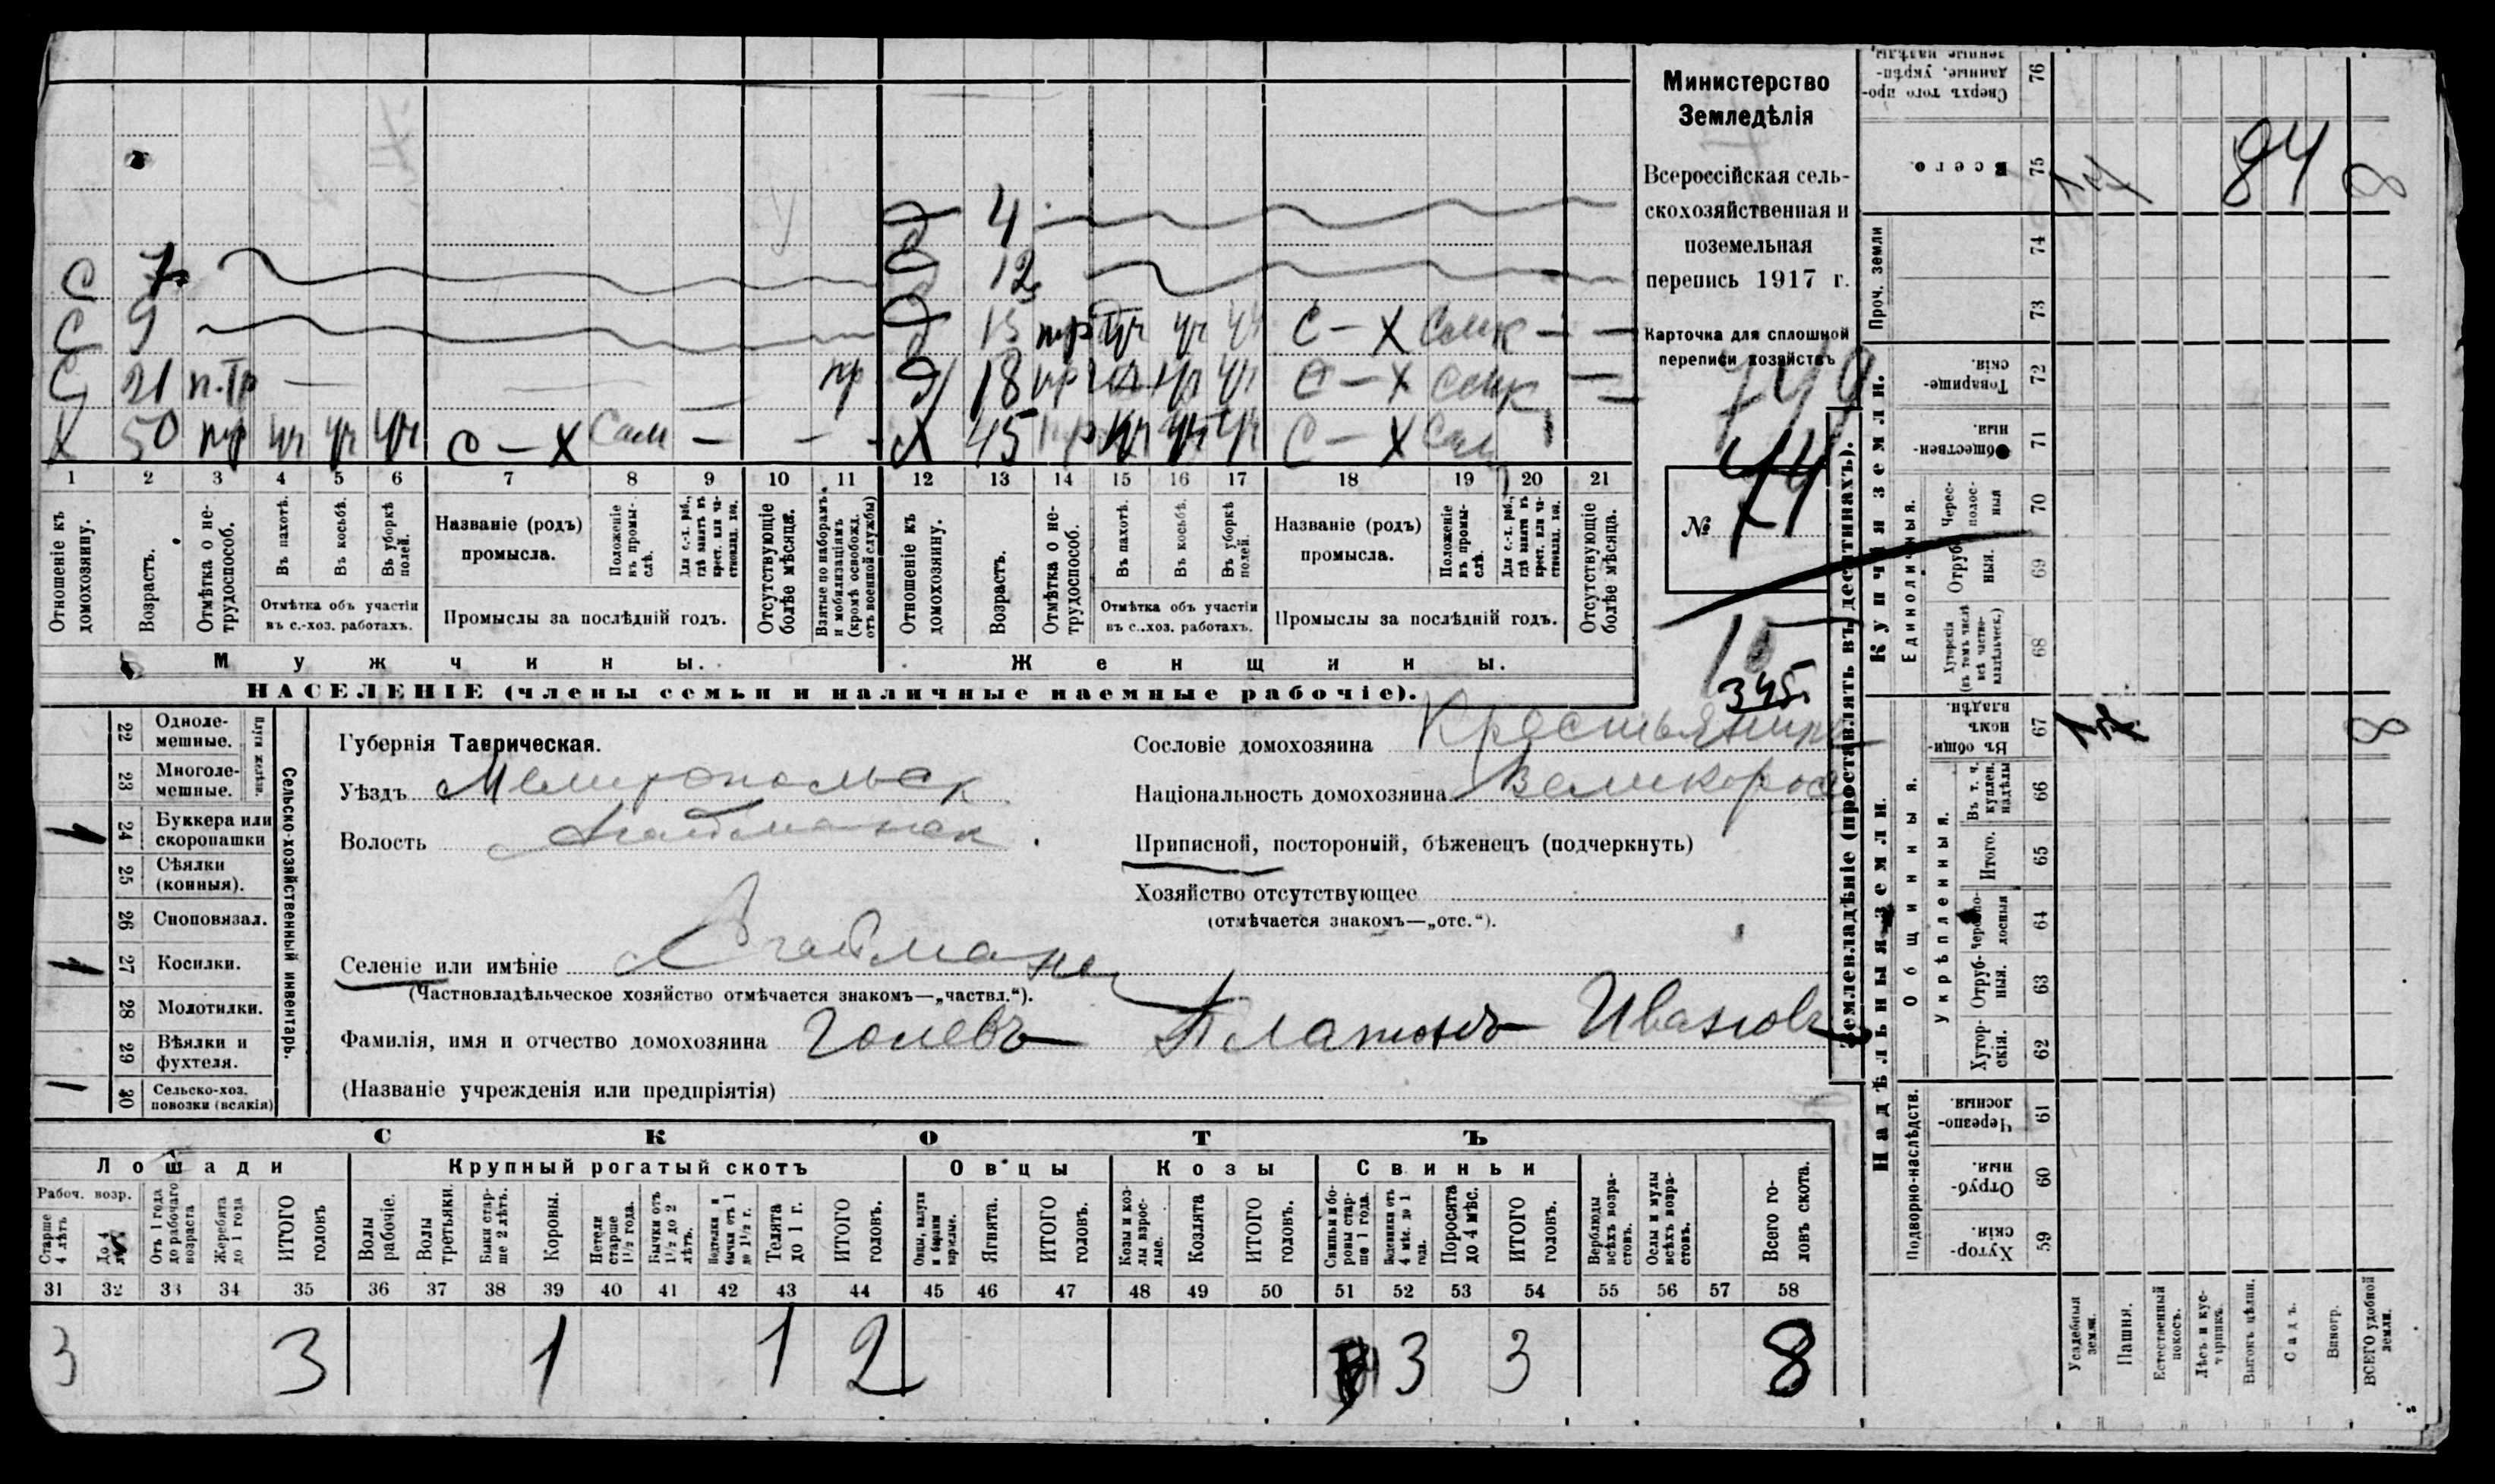 4
12
С 7
С 9 13 пр уч уч уч С – Х Сам –
С 21 п.тр – пр Д 18 пр уч уч С – Х –
Х 50 пр уч уч уч с – х Сам – – – Х 45 пр уч уч уч С – Х Сам
1 2 3 4 5 6 7 8 9 10 11 12 13 14 15 16 17 18 19 20 21
Отношеніе къ домохозяину.
Возрастъ.
Отмѣтка о не-
трудоспособ.
Въ пахотѣ.
Въ косьбѣ.
Въ уборкѣ полей.
Отмѣтка объ участіи
въ с.-хоз. работахъ.
Названіе (родъ)
промысла.
Положеніе
въ промы-
слѣ.
Для с.-х. раб.,
гдѣ занятъ въ
крест. или ча-
стновлад. хоз.
Промыслы за послѣдній годъ.
Отсутствующіе
болѣе мѣсяца.
Взятые по наборамъ
и мобилизаціямъ
(кромѣ освобожд.
отъ военной службы)
Отношеніе къ
домохозяину.
Возрастъ.
Отмѣтка о не-
трудоспособ.
Въ пахотѣ.
Въ косьбѣ.
Въ уборкѣ
полей.
Отмѣтка объ участіи
въ с..хоз. работахъ.
Названіе (родъ)
промысла.
Положеніе
въ промы-
слѣ.
Для с.-х. раб.,
гдѣ занятъ въ
крест. или ча-
стновлад. хоз.
Промыслы за послѣдній годъ.
Отсутствующіе
болѣе мѣсяца.
Мужчины.
Женщины.
НАСЕЛЕНІЕ (члены семьи и наличные наемные рабочіе).
Министерство
Земледѣлія
Всероссійская сель-
скохозяйственная и
поземельная
перепись 1917 г.
Карточка для сплошной
переписи хозяйствъ
749
№ 44
345
22 Одноле-
мешные.
23 Многоле-
мешные.
Плуги желѣзн.
24 Буккера или
скоропашки
25 Сѣялки
(конныя).
26 Сноповязал.
27 Косилки.
28 Молотилки.
29 Вѣялки и
фухтеля.
30 Сельско-хоз.
повозки (всякія)
Сельско-хозяйственный инвентарь.
Губернія Таврическая.
Уѣздъ Мелитопольск
Волость Ахтманск
Сословіе домохозяина Крестьянинъ
Національность домохозяина Великорос
Приписной, посторонній, бѣженецъ (подчеркнуть)
Хозяйство отсутствующее
(отмѣчается знакомъ—„отс.“).
Селеніе или имѣніе
(Частновладѣльческое хозяйство отмѣчается знакомъ—„частвл.“).
Фамилія, имя и отчество домохозяина Голевъ Платонъ Иванов
(Названіе учрежденія или предпріятія)
СКОТЪ
Лошади
Крупный рогатый скотъ
Овцы
Козы
Свиньи
Рабоч. возр.
Старше
4 лѣтъ
До 4
Отъ 1 года
до рабочаго
возраста
Жеребята
до 1 года
ИТОГО
головъ
Волы
рабочіе.
Волы
третьяки.
Быки стар-
ше 2 лѣтъ.
Коровы.
Нетели
старше
1½ года.
Бычки отъ
1½ до 2
лѣтъ.
Подтелки и
бычки отъ 1
до 1½ г.
Телята
до 1 г.
ИТОГО
головъ.
Овцы, валухи
и бараны
взрослые.
Ягнята.
ИТОГО
головъ.
Козы и коз-
лы взрос-
лые.
Козлята
ИТОГО
головъ.
Свиньи и бо-
ровы стар-
ше 1 года.
Подсвинки отъ
4 мѣс. до 1
года.
Поросята
до 4 мѣс.
ИТОГО
головъ.
Верблюды
всѣхъ возра-
стовъ.
Ослы и мулы
всѣхъ возра-
стовъ.
Всего го-
ловъ скота.
31 32 33 34 35 36 37 38 39 40 41 42 43 44 45 46 47 48 49 50 51 52 53 54 55 56 57 58
3 3 1 1 2 3 3 8
Землевладѣніе (проставлять въ десятинахъ).
Сверхъ того про-
данные, укрѣп-
ленные надѣлы
76
Всего.
75
84 8
Проч. земли
74
73
Купчія земли.
Товарище-
скія.
72
Обществен-
ныя.
71
Единоличныя.
Черес-
полос-
ныя
70
Отруб-
ныя.
69
Хуторскія
(въ томъ числѣ
всѣ частно-
владѣльческ.)
68
Надѣльныя земли.
Общинныя.
Въ общи-
номъ
владѣн.
67
8
Укрѣпленныя.
Въ т. ч.
куплен.
надѣлы
66
Итого.
65
Черезпо-
лосныя
64
Отруб-
ныя.
63
Хутор-
скія.
62
Подворно-наслѣдств.
Черезпо-
лосныя.
61
Отруб-
ныя.
60
Хутор-
скія.
59
Усадебныя
земли.
Пашня.
Естественный
покосъ.
Лѣсъ и кус-
тарникъ.
Выгонъ цѣлин.
Садъ.
Виногр.
ВСЕГО удобной
земли.